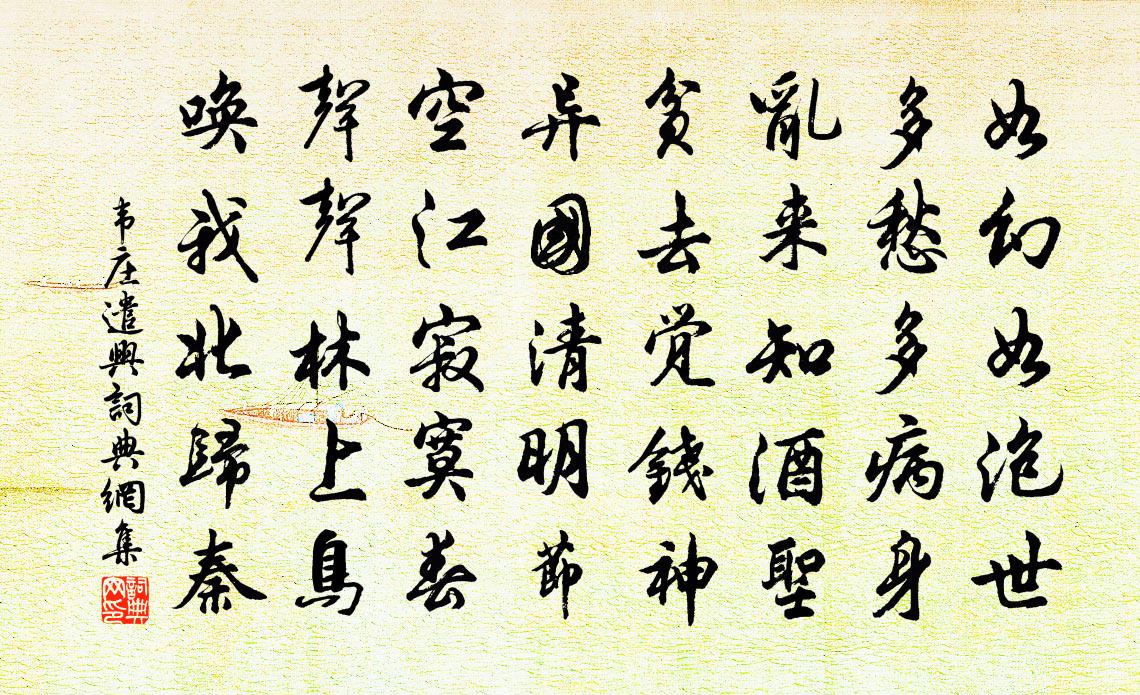 如幻如泡世
多愁多病身
亂来知酒聖
貧去覚錢神
异國清明節
空江寂寞春
聲聲林上鳥
喚我北歸秦
韦庄遣興詞典網集
詞典网印